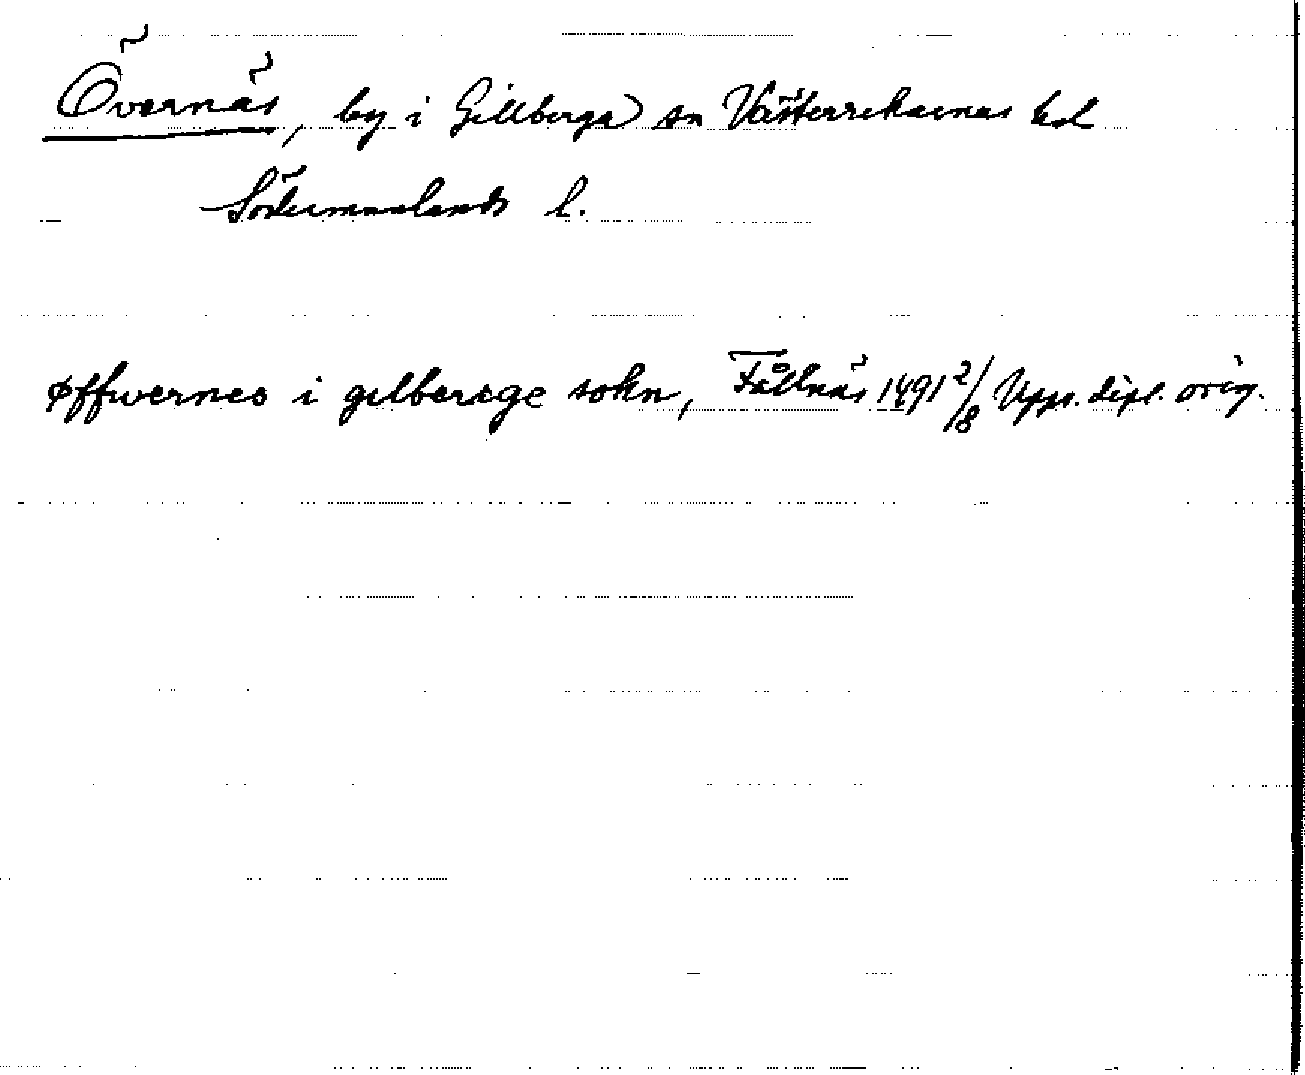 Övernäs, by i Gillberga sn Västerrekarnes hd
Södermanlands l.
øffwernes i gilberege sokn, Fållnäs 1491 2/8 Upps. dipl. orig.